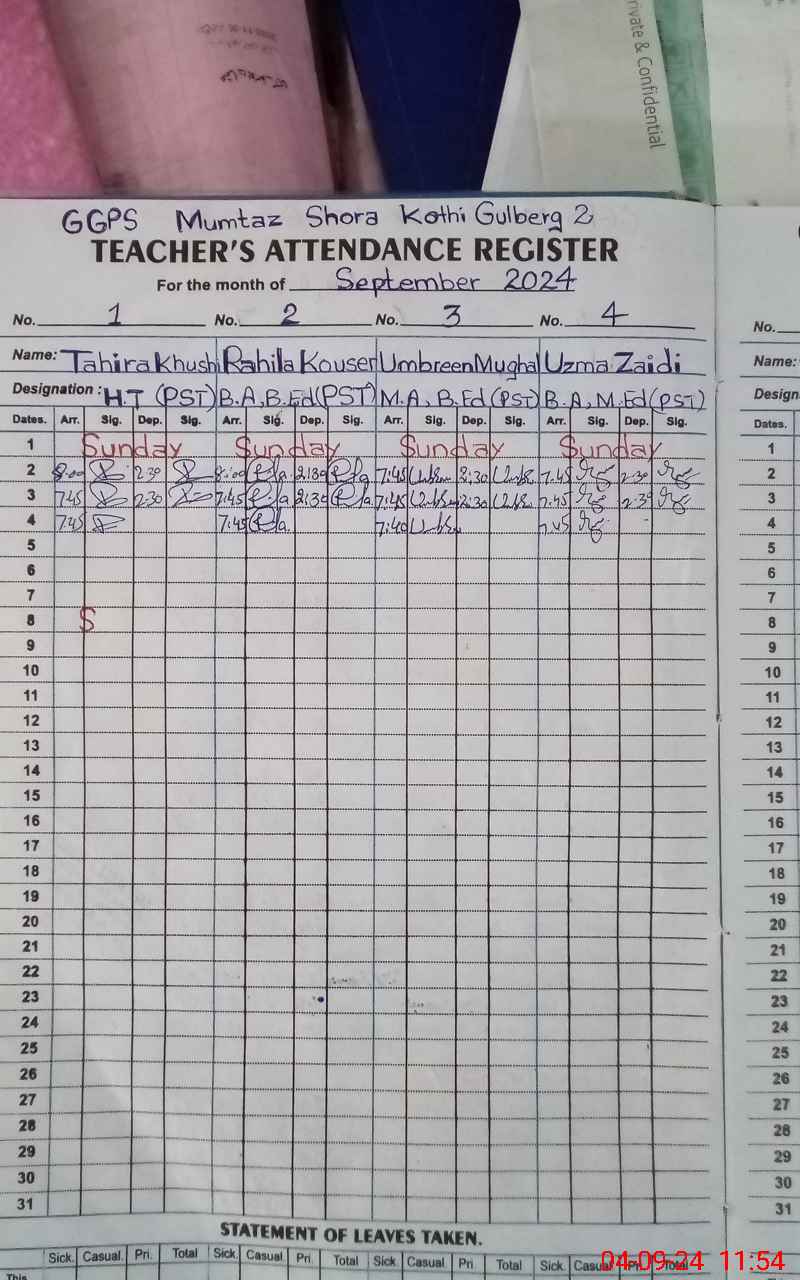 Private & Confidential
GGPS Mumtaz Shora Kothi Gulberg 2
TEACHER'S ATTENDANCE REGISTER
For the month of September 2024
No. 1 No. 2 No. 3 No. 4
Name: Tahira Khushi Rahila Kouser Umbreen Mughal Uzma Zaidi
Designation : H.T (PST) B.A, B.Ed (PST) M.A, B.Ed (PST) B.A, M.Ed (PST)
Dates. Arr. Sig. Dep. Sig. Arr. Sig. Dep. Sig. Arr. Sig. Dep. Sig. Arr. Sig. Dep. Sig.
1 Sunday Sunday Sunday Sunday
2 8:00 2:30 8:00 2:30 7:45 2:30 7:45 2:30
3 7:45 2:30 7:45 2:30 7:45 2:30 7:45 2:30
4 7:45 7:45 7:40 7:45
5
6
7
8 S
9
10
11
12
13
14
15
16
17
18
19
20
21
22
23
24
25
26
27
28
29
30
31
STATEMENT OF LEAVES TAKEN.
Sick. Casual. Pri. Total Sick. Casual Pri. Total Sick. Casual. Pri. Total Sick. Casual Pri. Total
This
No.
Name:
Design
Dates.
1
2
3
4
5
6
7
8
9
10
11
12
13
14
15
16
17
18
19
20
21
22
23
24
25
26
27
28
29
30
31
04.09.24 11:54